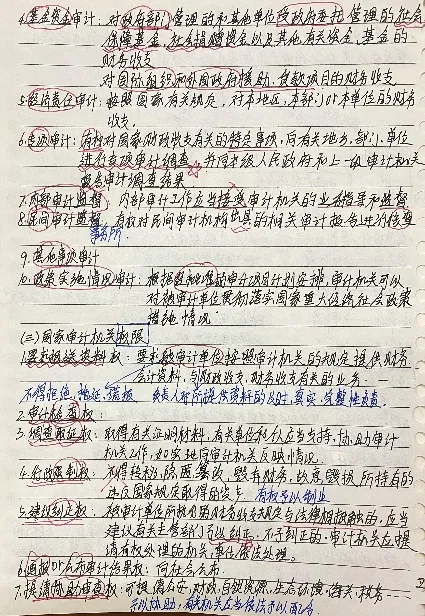 4.基金资金审计：对政府部门管理的和其他单位受政府委托管理的社会
保障基金，社会捐赠资金以及其他有关资金、基金的
财务收支
对国际组织和外国政府援助、贷款项目的财务收支
5.经济责任审计：按照国家有关规定，对本地区、本部门or本单位的财务
收支。
6.专项审计：有权对国家财政收支有关的特定事项，向有关地方、部门、单位
进行专项审计调查，并向本级人民政府和上一级审计机关
报告审计调查结果
7.内部审计监督：内部审计工作应当接受审计机关的业务指导和监督
8.民间审计监督：有权对民间审计机构出具的相关审计报告进行核查
事务所
9.其他事项审计
10.政策实施情况审计：根据经批准的审计项目计划安排，审计机关可以
对被审计单位贯彻落实国家重大经济社会政策
措施情况
(三)国家审计机关权限
1.要求报送资料权：要求被审计单位按照审计机关的规定提供财务
会计资料，与财政收支、财务收支有关的业务、一
不得拒绝、拖延、谎报 负责人对所提供资料的及时、真实、完整性负责。
2.审计检查权：
3.调查取证权：取得有关证明材料，有关单位和个人应当支持、协助审计
机关工作，如实地向审计机关反映情况。
4.行政强制权：不得转移、隐匿、篡改、毁弃财务，故意毁损所持有的
违反国家规定取得的资产 有权予以制止
5.建议纠正权：被审计单位所执行的财务收支规定与法律相抵触的，应当
建议有关主管部门予以纠正，不予纠正的，审计机关应当提
请有权处理的机关、单位依法处理。
6.通报or公布审计结果权：向社会公布
7.提请协助审查权：可提请公安、财政、自然资源、生态环境、海关、税务
予以协助，有关机关应当依法予以配合